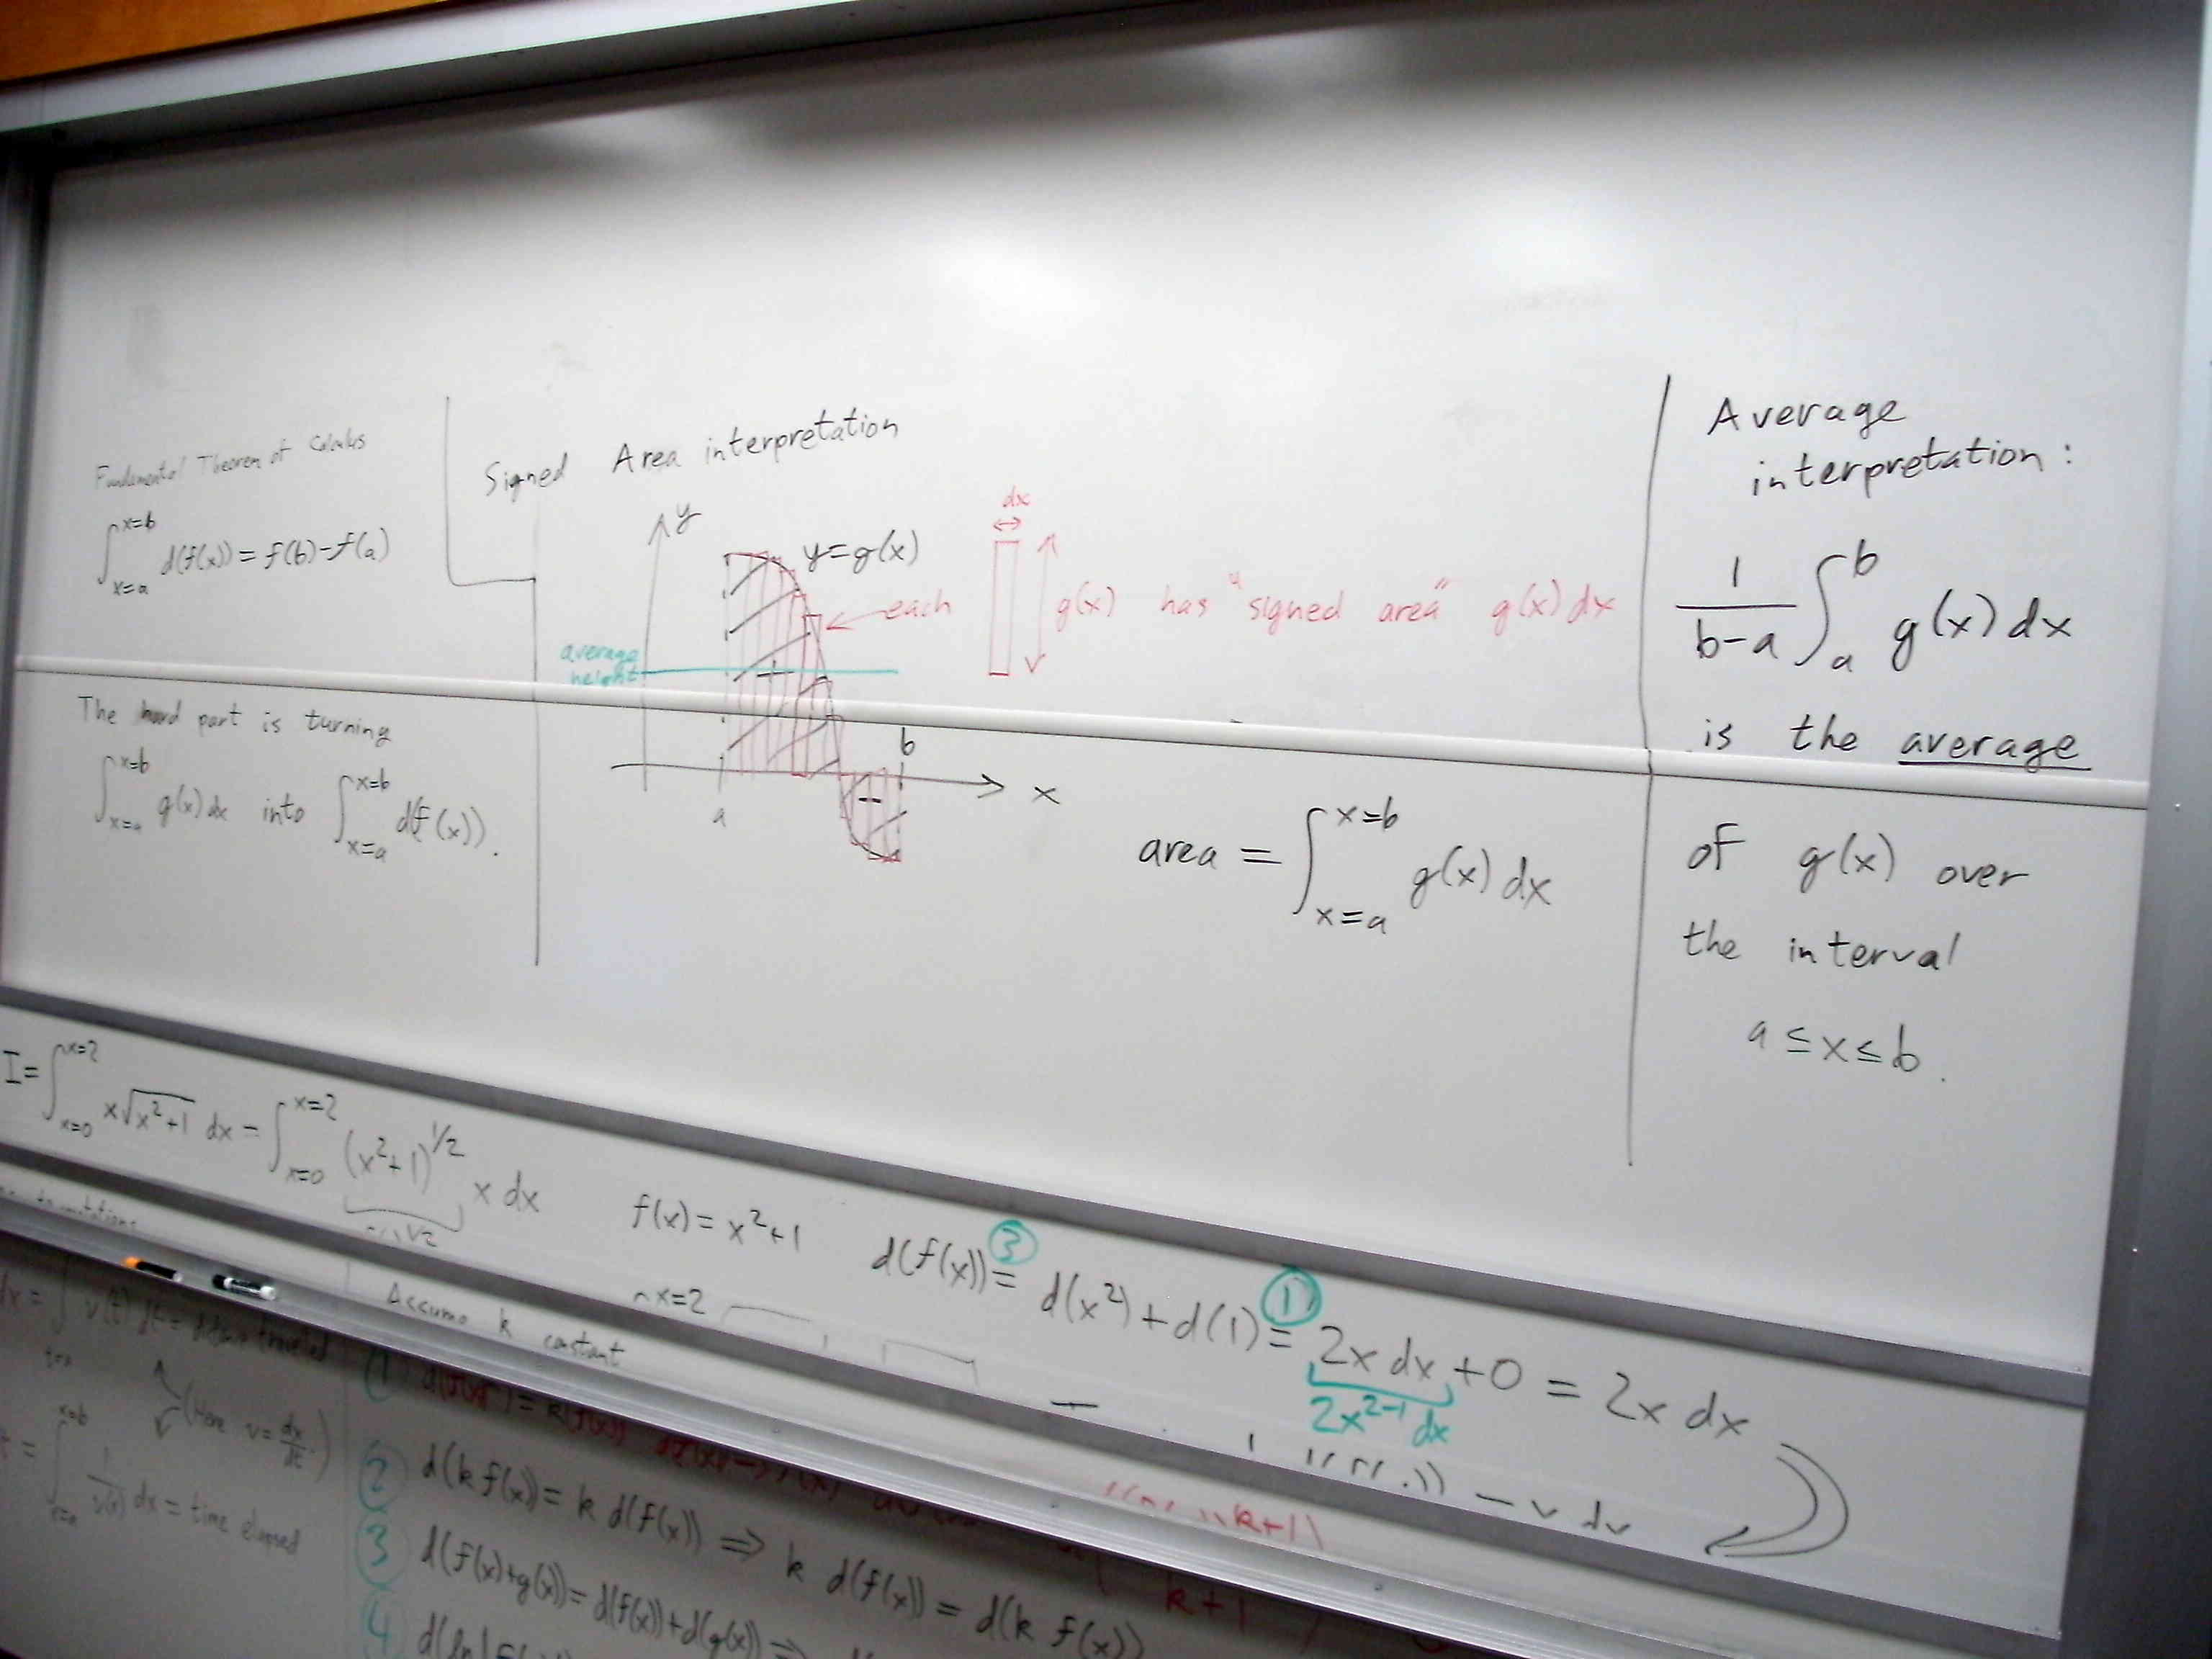 Fundamental Theorem of Calculus
∫_{x=a}^{x=b} d(f(x)) = f(b)-f(a)
The hard part is turning
∫_{x=a}^{x=b} g(x) dx into ∫_{x=a}^{x=b} d(f(x)).
Signed Area interpretation
y
y=g(x)
each
dx
g(x) has "signed area" g(x) dx
average
height
+
-
a
b
x
area = ∫_{x=a}^{x=b} g(x) dx
Average
interpretation:
1/(b-a) ∫_a^b g(x) dx
is the average
of g(x) over
the interval
a ≤ x ≤ b.
I = ∫_{x=0}^{x=2} x√(x²+1) dx = ∫_{x=0}^{x=2} (x²+1)^{1/2} x dx
f(x) = x²+1
d(f(x)) =③ d(x²) + d(1) =① 2x dx + 0 = 2x dx
2x^{2-1} dx
x=2
Assume k constant
dx = ∫ v(t) dt = distance traveled
(Here v = dx/dt)
∫_{x=a}^{x=b} 1/v(x) dx = time elapsed
①
② d(k f(x)) = k d(f(x)) ⇒ k d(f(x)) = d(k f(x))
③ d(f(x)+g(x)) = d(f(x)) + d(g(x)) ⇒
④
k+1
k+1